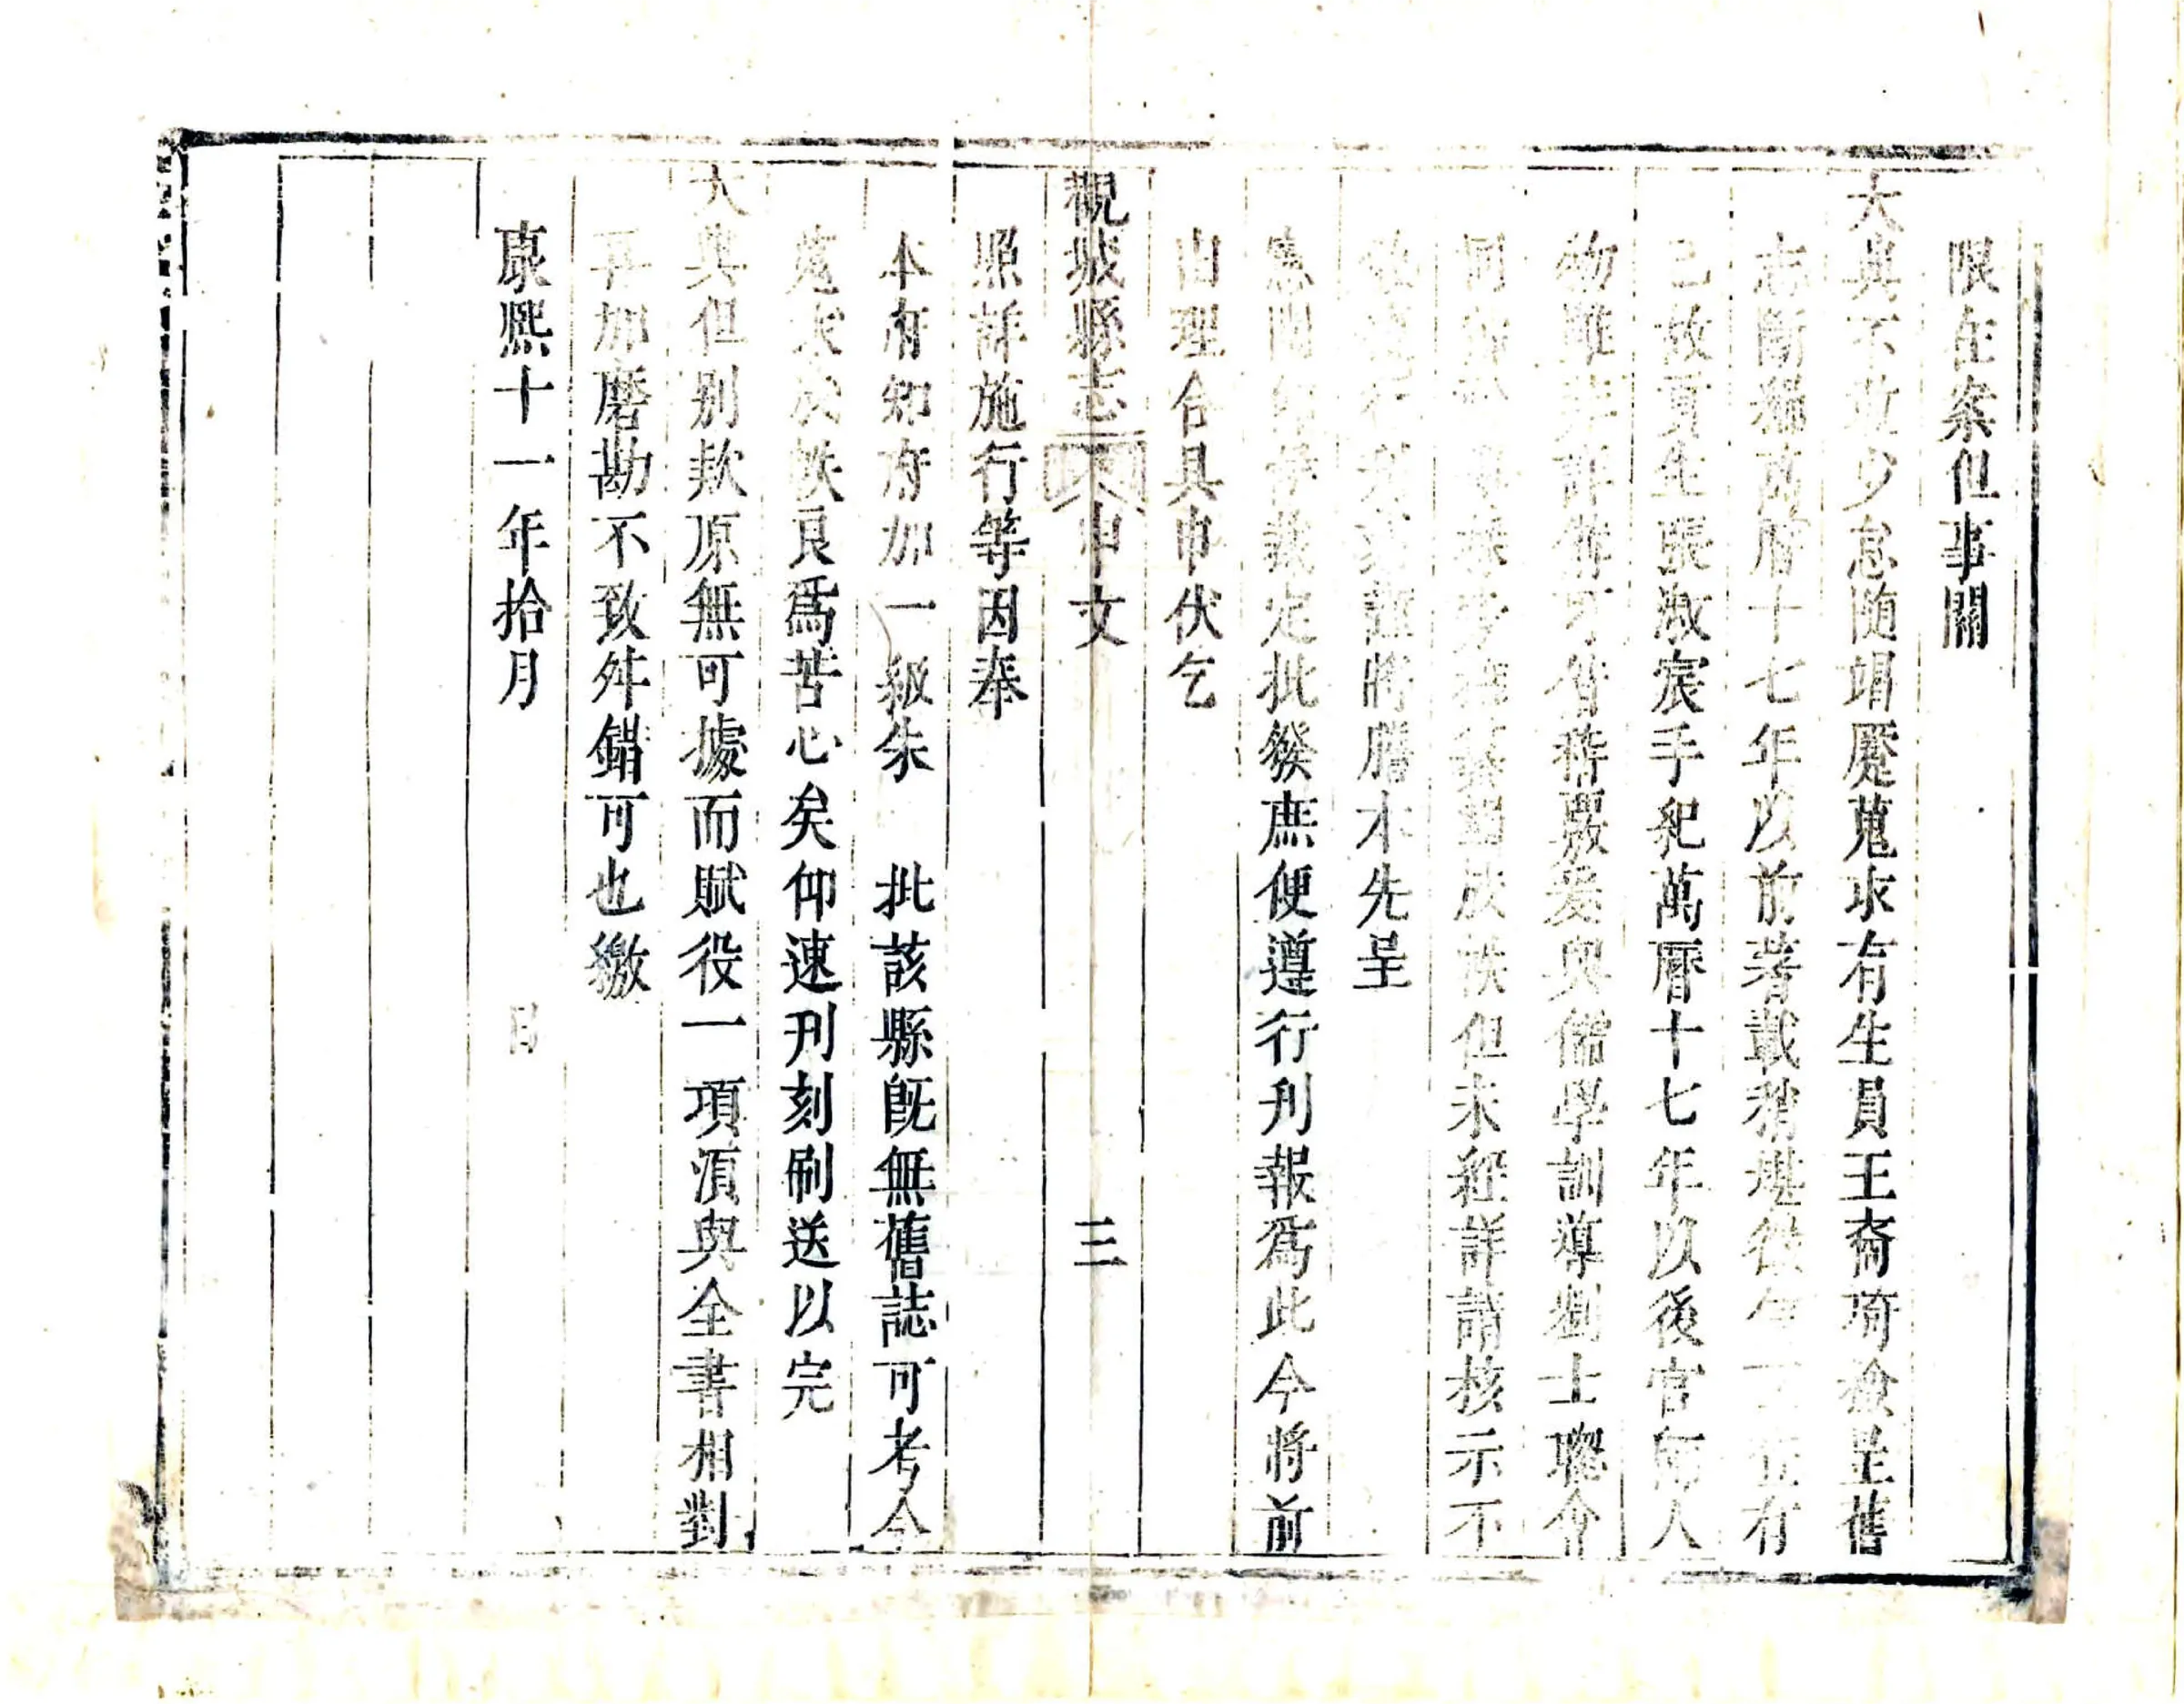 限在案但事關
大典不敢少怠随竭蹙蒐求有生員王裔琦撿呈舊
志斷編萬曆十七年以前著載稍堪 有
已故貢生張淑宸手紀萬曆十七年以後官師人
物雖 詳備 稽覈爰與儒學訓導劉士聰僉
同 成帙但未經詳請核示不
敢 將謄本先呈
裁定批發庶便遵行刋報爲此今將前
由理合具申伏乞
觀城縣志 申文 三
照詳施行等因奉
本府知府加一級朱 批該縣旣無舊誌可考今
蒐求成帙良爲苦心矣仰速刋刻刷送以完
大典但别款原無可據而賦役一項湏與全書相對
再加磨勘不致舛錯可也繳
康熙十一年拾月 日